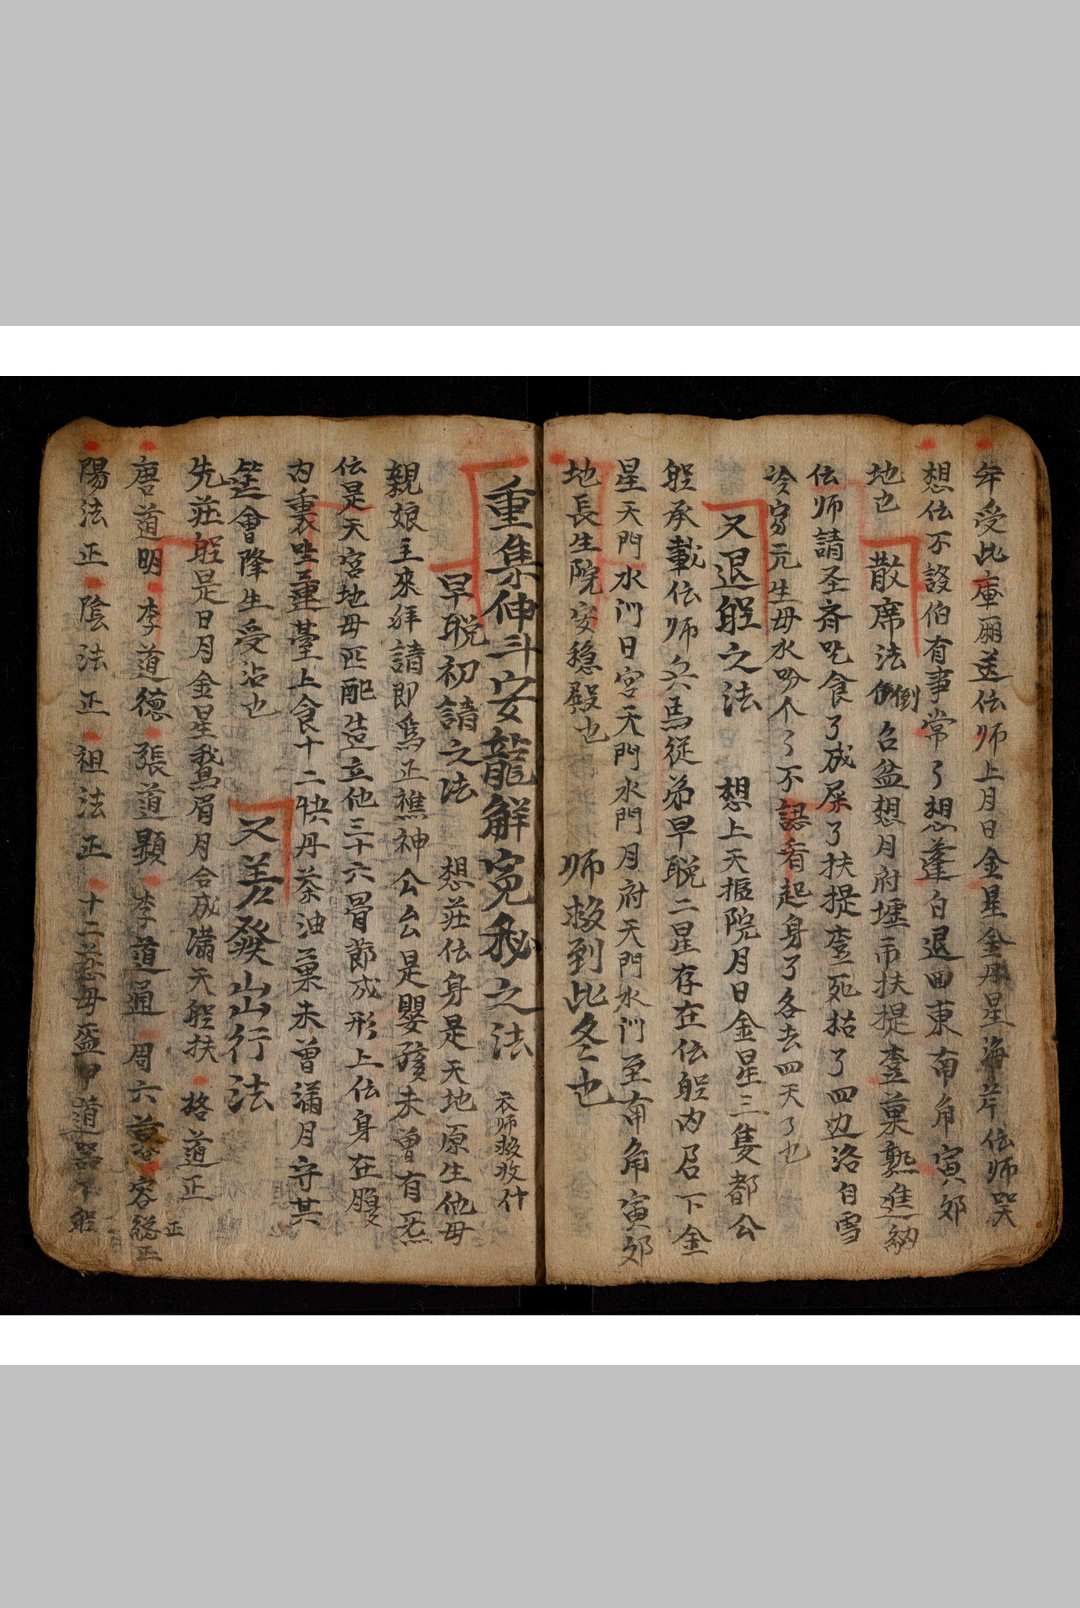 年受比庫廂送伝师上月日金星金丹星海岸伝师哭
想伝不諗伯有事常了想蓬白退回東南角寅夘
地也 散席法倒 召盆想月府壇帀扶提李菓熟進納
伝师請圣斉吃食了成屎了扶提李死枯了四边洛自雪
冷家元生母水吟个了不認看起身了各去四天了也
又退躯之法 想上天摳院月日金星三隻都公
躯承載伝师兵馬從弟早脱二星存在伝躯内召下金
星天門水门日宮天門水門月府天門水门至南角寅夘
地長生院安穩殿也 师救到比冬也
重集伸斗安龍解冤秘之法 衣师救攻什
早脱初請之法 想莊伝身是天地原生他母
親娘主來拜請即爲正樵神公厶是嬰孩未曾有炁
伝是天宮地母匹配造立他三十六骨節成形上伝身在腹
内裏坐蓮臺上食十二快丹茶油菓未曾滿月守其
筵會降生受沾也 又差發出行法
先莊躯是日月金星我鳥眉月合成滿天躯扶 格道正
唐道明 李道德 張道顯 李道通 周六 客總正 正
陽法正 陰法正 祖法正 十二 母盔甲 道器 躯